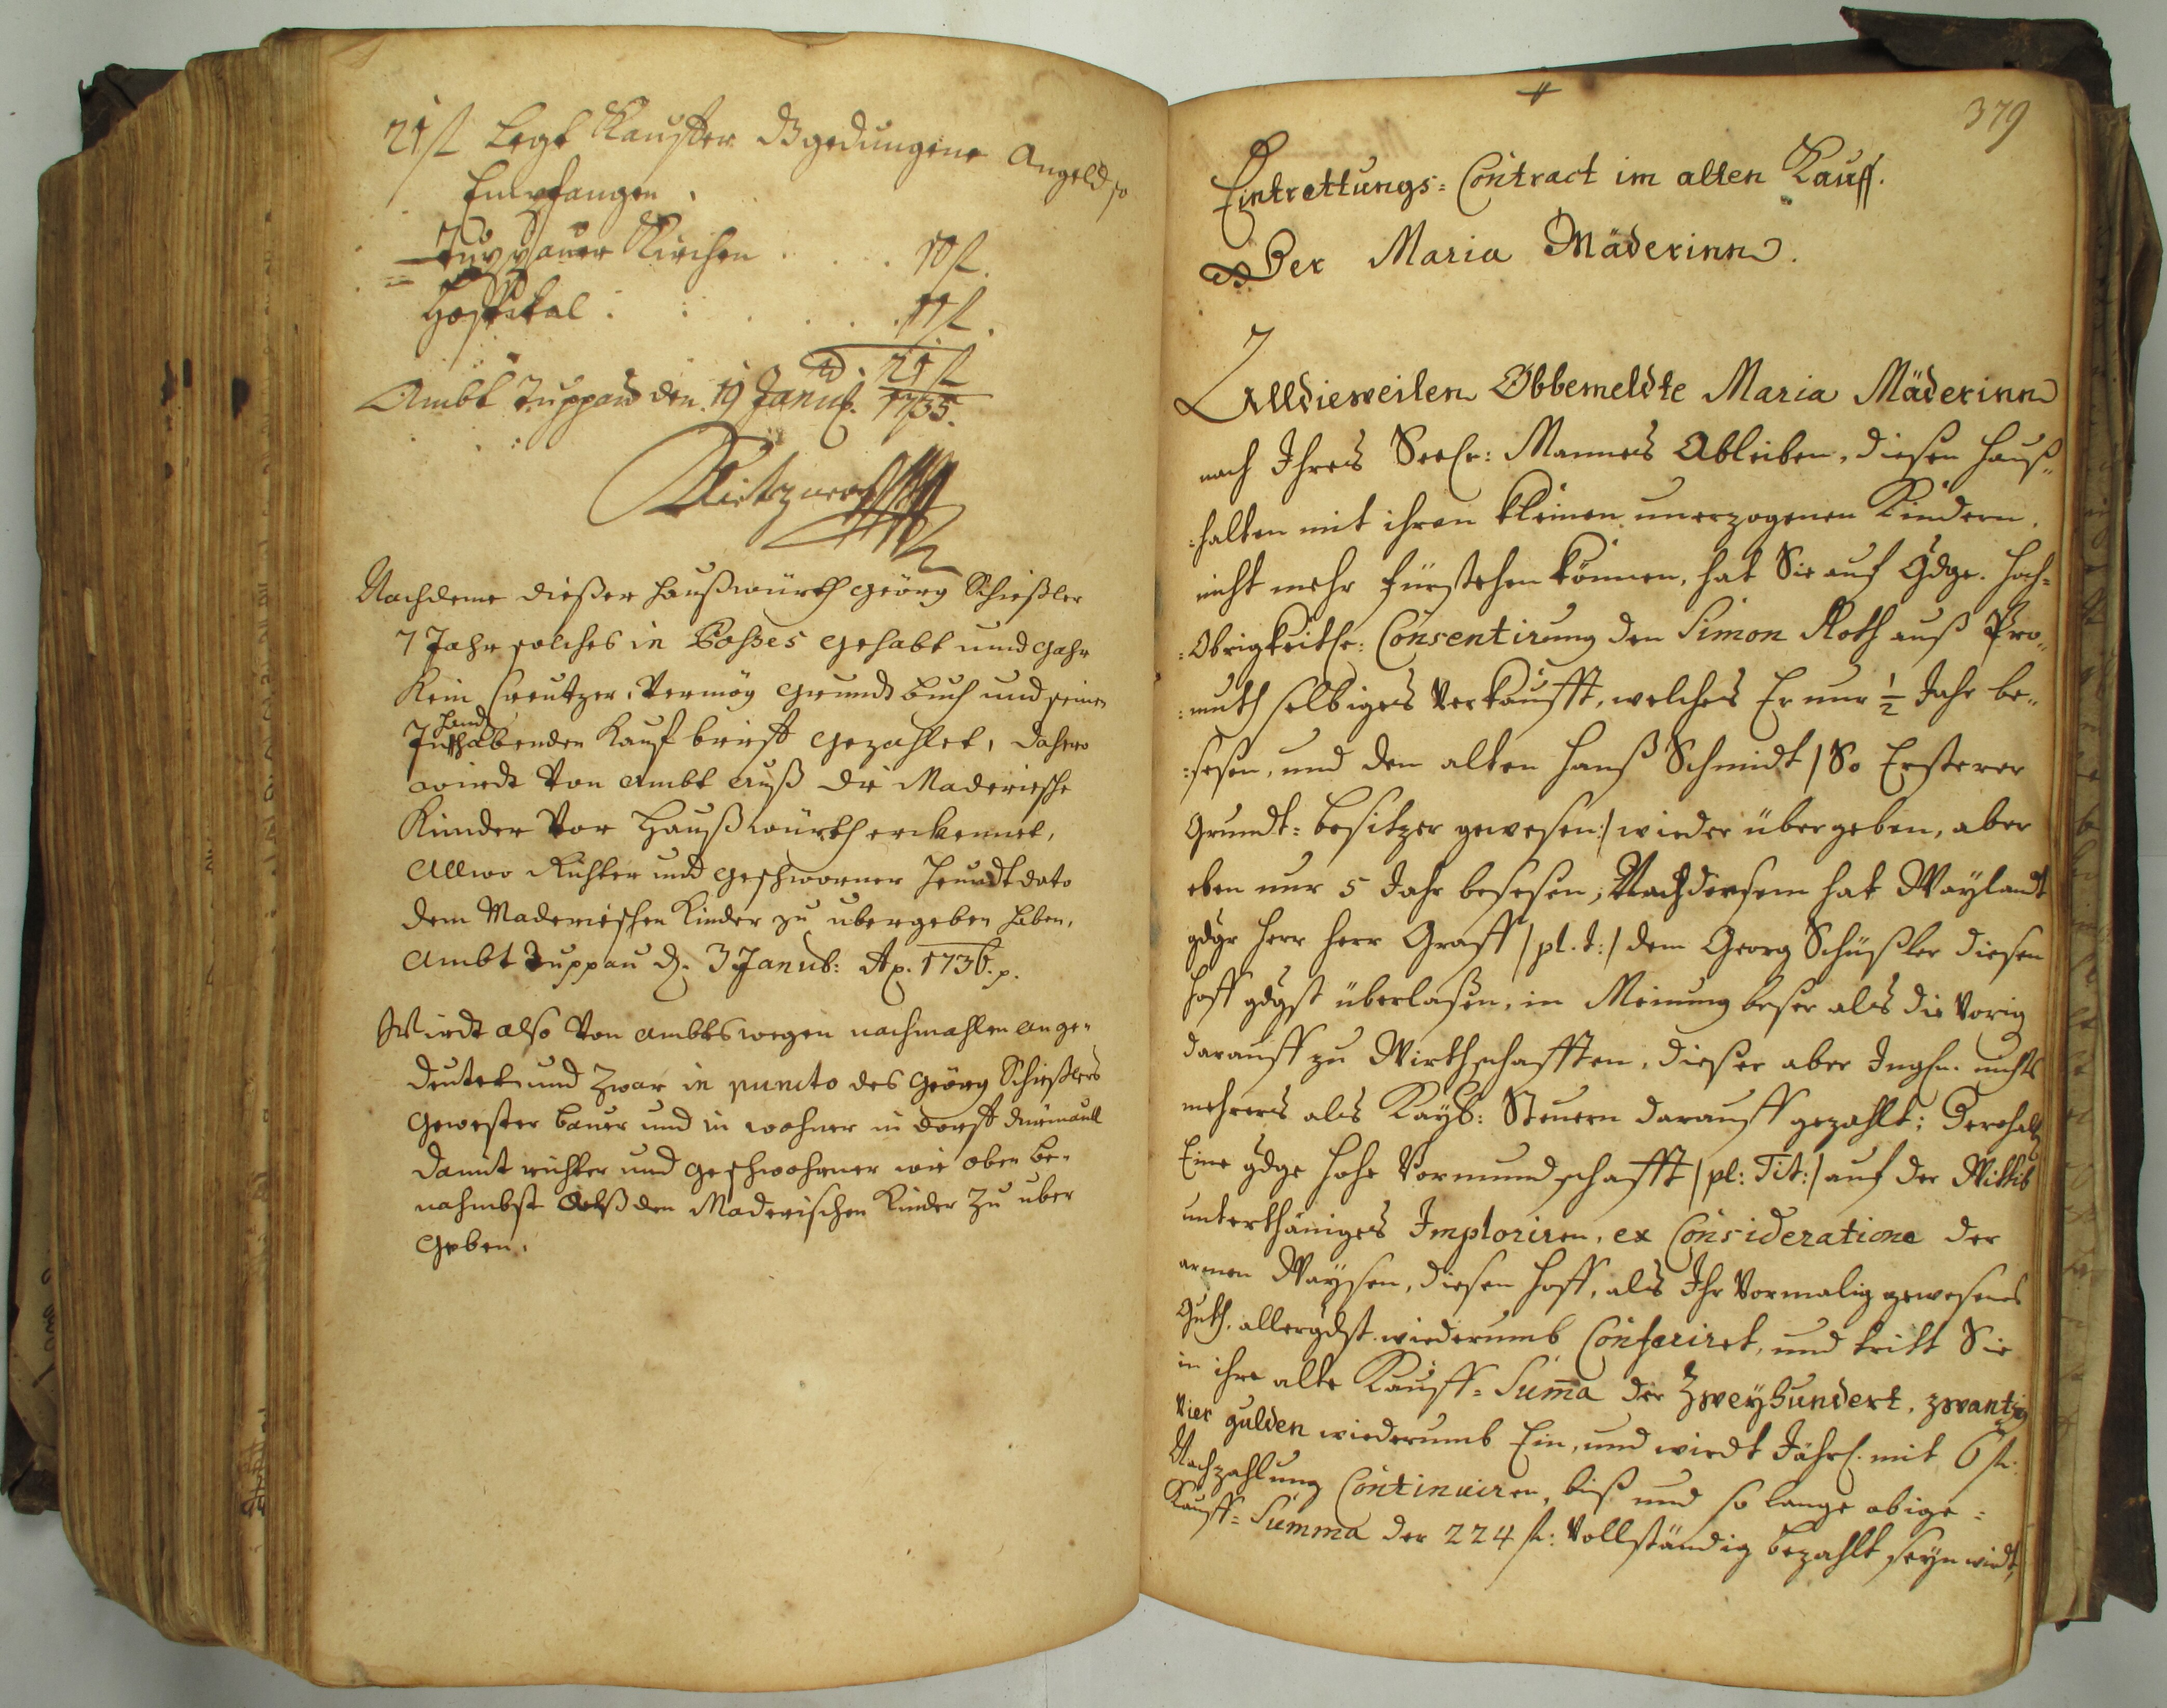 21 fl Legt Kauffer Bgedungene Angeld so
Empfangen.
Duppauer Kirchen . . . . 10 fl.
Hospital . : . . . . 11 fl.
id. 21 fl
Ambt Duppau den 19 Januarÿ 1735.
Nachdeme dießer Haußwürth Geörg Schießler
7 Jahr solches in Poßes gehabt und gahr
Kein Creutzer, Vermög Grundt Buch und seinen
In hand habenden Kauf brieff gezahlet, dahero
wirdt Von Ambt auß die Maderische
Kinder Vor Haußwürth erkennet,
Allwo Richter und Geschworner heundt dato
dem Maderischen Kinder zu ubergeben haben,
Ambt Duppau d. 3 Januar: Ao. 1736. p.
Wirdt also Von Ambts wegen nachmahlen ange-
deutet und zwar in puncto des Geörg Schießlers
Gewester Bauer und in wohner in Dorff
damit richter und Geschwohrner wie oben be-
nahmbst den Maderischen Kinder zu uber
Geben.
379
Eintrettungs-Contract im alten Kauff.
Der Maria Mäderinn.
Alldieweilen Obbemeldte Maria Mäderinn
nach Ihres Seel: Mannes Ableiben, diesen Hauß-
-halten mit ihren kleinen unerzogenen Kindern,
nicht mehr fürstehen können, hat Sie auf Gdge. Hoch-
-Obrigkeitl: Consentirung den Simon Roth auß Pro-
-muth selbiges Verkaufft, welches Er nur ½ Jahr be-
-sesen, und den alten Hanß Schmidt /So Ersterer
Grundt-besitzer gewesen:/ wieder übergeben, aber
eben nur 5 Jahr besesen; Nachdersem hat Waylandt
gdgr Herr Herr Graff /pl. t:/ dem Georg Schüßler diesen
Hoff gdgst überlaßen, in Meinung beser als die Vorig
darauff zu Wirthschafften, dieser aber Ingl. nichts
mehrers als Kayß: Steuern darauff gezahlt; Derohalb
Eine gdge Hohe Vormundschafft /pl: Tit:/ auf der Wittib
unterthäniges Imploriren, ex Consideratione der
armen Waysen, diesen Hoff, als Ihr Vormalig gewesenes
Guth, allergdst. wiederumb Conferiret, und tritt Sie
in ihre alte Kauff-Suma der Zweyhundert, zwantzig
Vier gulden wiederumb Ein, und wirdt Jährl. mit 6 fl:
Nachzahlung Continuiren, biß und so lange obige -
Kauff-Summa der 224 fl: Vollständig bezahlt seyn wirdt,